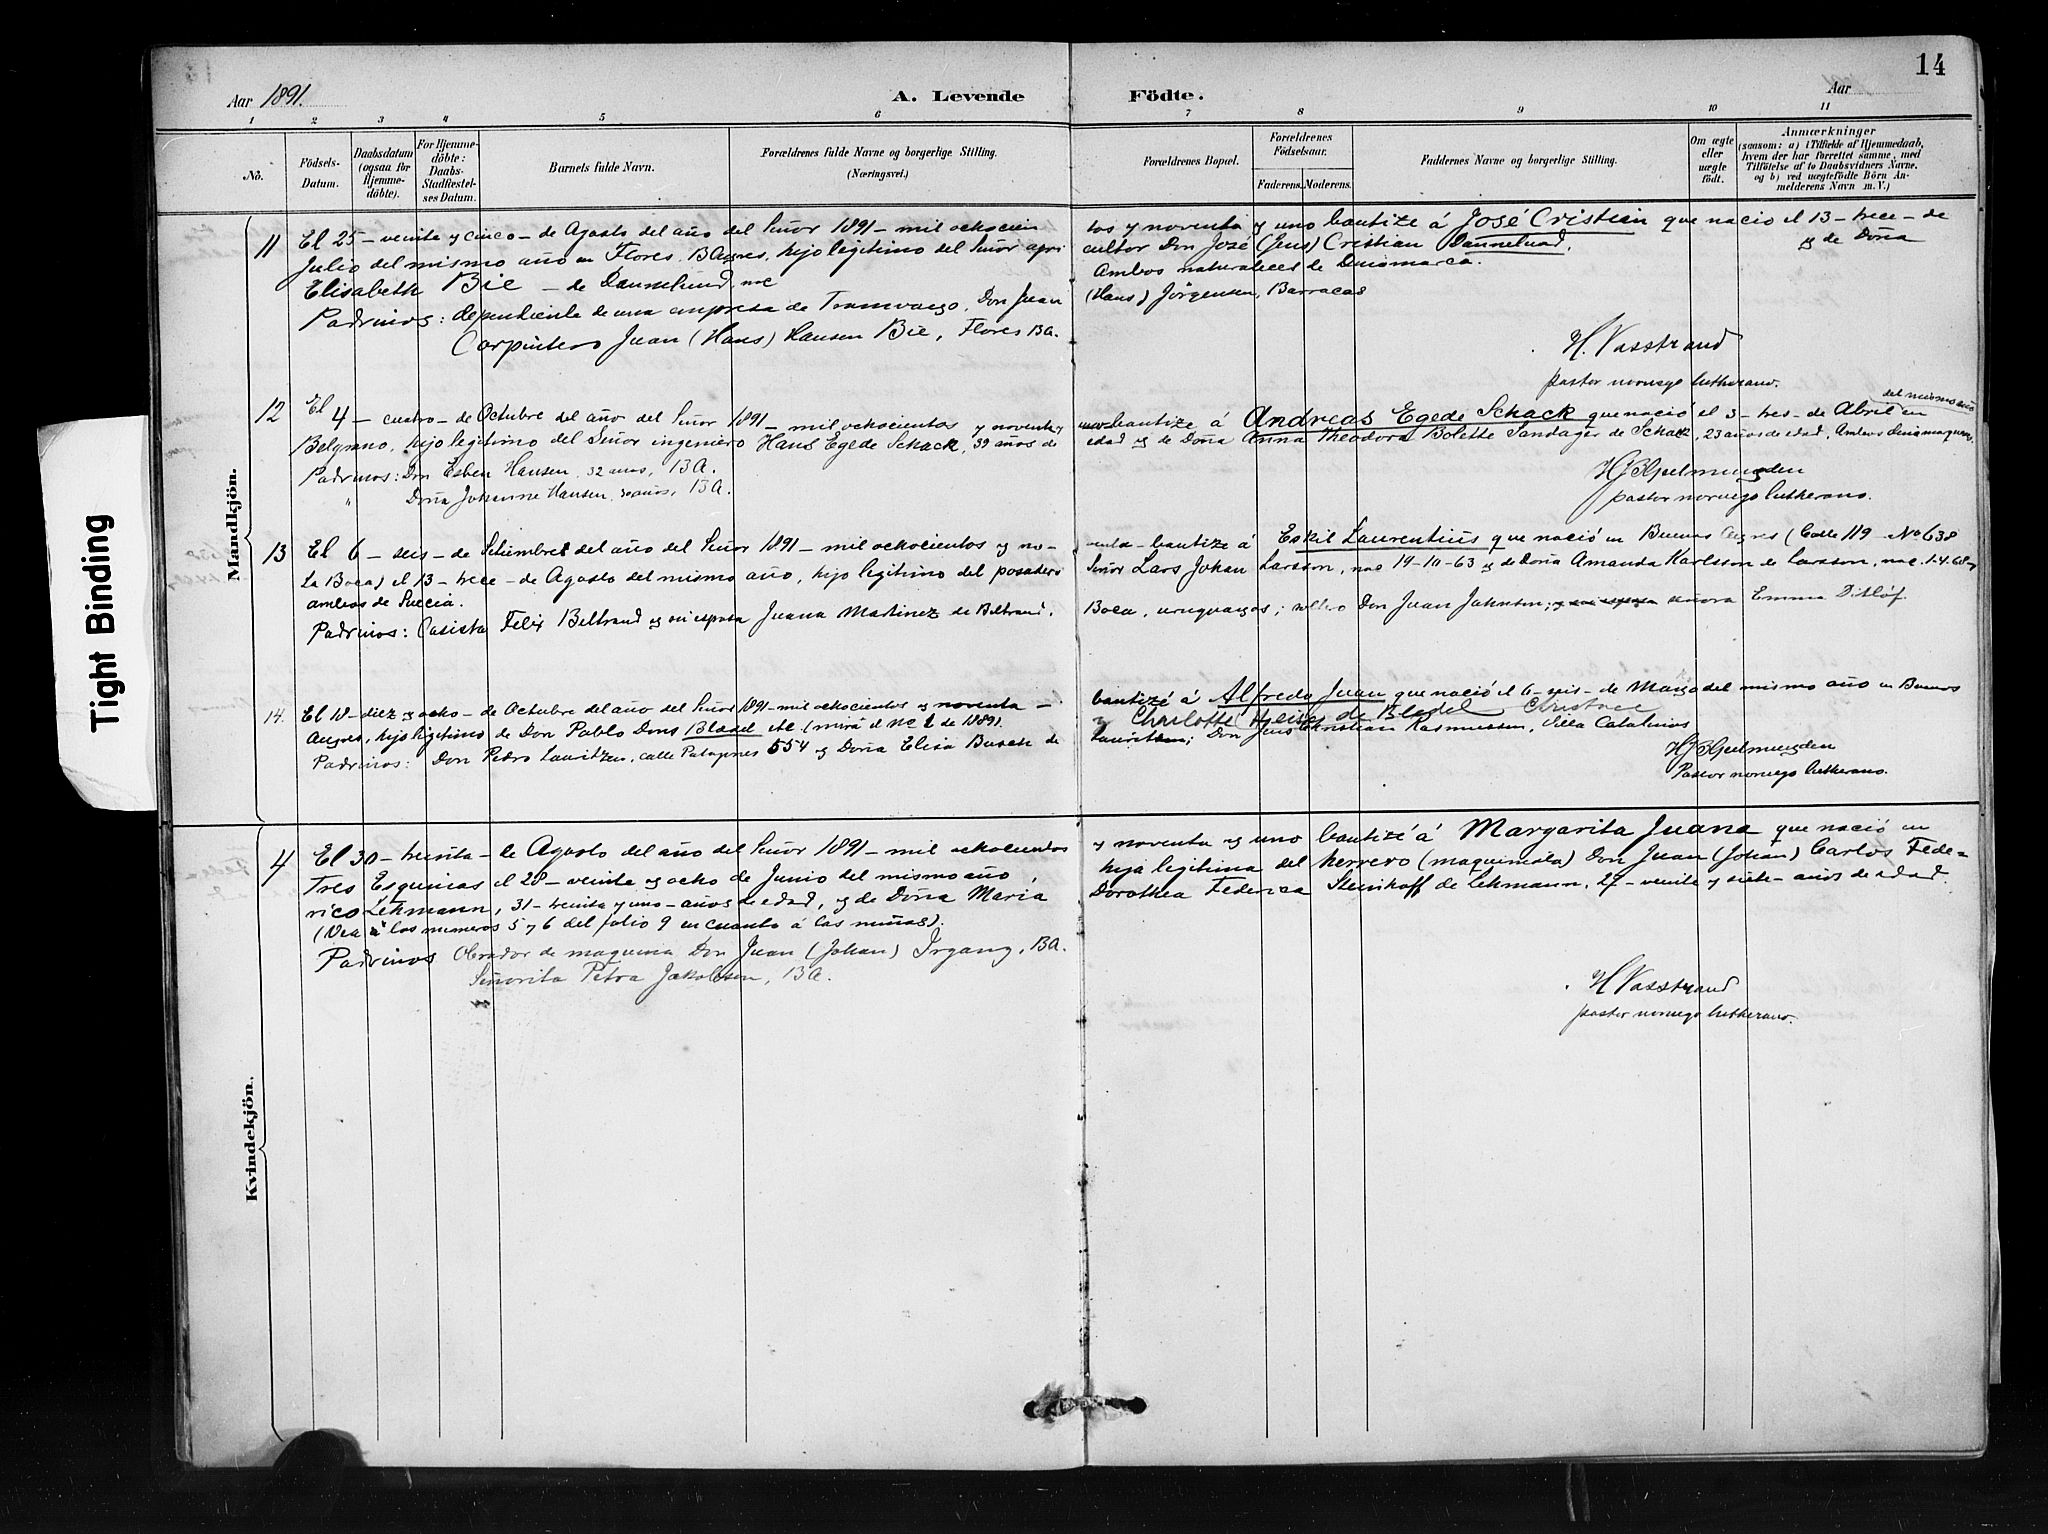 14
Aar 1891.
A. Levende Födte.
Aar
1 2 3 4 5 6 7 8 9 10 11
No.
Födsels-Datum.
Daabsdatum (ogsaa för Hjemme-döbte).
For Hjemme-döbte: Daabs-Stadfæstel-ses Datum.
Barnets fulde Navn.
Forældrenes fulde Navne og borgerlige Stilling. (Næringsvei.)
Forældrenes Bopæl.
Forældrenes Födselsaar.
Faderens. Moderens.
Faddernes Navne og borgerlige Stilling.
Om ægte eller uægte födt.
Anmærkninger (saasom: a) i Tilfælde af Hjemmedaab, hvem der har forrettet samme, med Tilföielse af to Daabsvidners Navne. og b) ved uægtefödte Börn An-melderens Navn m. V.)
Mandkjön.
11 El 25 – veinte y cinco – de Agosto del año del Señor 1891 – mil ochocien tos y noventa y uno bautizé á José Cristian que nació el 13 – trece – de
Julio del mismo año en Flores, BAyres, hijo legitimo del Señor agri cultor Don José (Jens) Cristian Dannelund, y de Doña
Elisabeth Bie – de Dannelund, Ambos naturales de Dinamarca.
Padrinos: dependiente de una empresa de Tramvays, Don Juan (Hans) Jörgensen, Barracas
Carpintero Juan (Hans) Hansen Bie, Flores BA.
H. Vasstrand
pastor noruego lutherano.
12 El 4 – cuatro – de Octubre del año del Señor 1891 – mil ochocientos y noventa y uno bautize á Andreas Egede Schack que nació el 3 – tres – de Abril del mismo año en
Belgrano, hijo legitimo del Señor ingeniero Hans Egede Schack, 39 años de edad y de Doña Anna Theodora Bolette Sandager de Schack, 23 años de edad, Ambos
Padrinos: Don Esben Hansen, 32 anos, BA.
" Doña Johanne Hansen, 30 años, BA.
pastor noruego lutherano.
13 El 6 – seis – de Setiembre del año del Señor 1891 – mil ochocientos y no– venta – bautize á Eskil Laurentiüs que nació en Buenos Ayres (Calle 119 – No 638
La Boca) el 13 – trece – de Agosto del mismo año, hijo legitimo del posadero Señor Lars Johan Larsson, nac 19-10-63 y de Doña Amanda Karlsson de Larsson, nac. 1-4-68
ambos de Suecia.
Padrinos: Casista Felix Beltrand y su esposa Juana Martinez de Beltrand, Boca, uruguayos; soltero Don Juan Johnsen; y su esposa señora Emma Ditlöf.
14. El 18 – diez y ocho – de Octubre del año del Señor 1891 – mil ochocientos y noventa – bautizé á Alfredo Juan que nació el 6 – seis – de Mayo del mismo año en Buenos
Ayres, hijo legitimo de Don Pablo Dons Bladel etc (mirá el No 1 de 1891. y Charlotte Heises de Bladel
Padrinos: Don Pedro Lauritzen, calle Patagones 554 y Doña Elisa Busch de Lauritzen; Don Jens Christian Rasmussen, Villa Catalinas
Pastor noruego lutherano.
Kvindekjön.
4 El 30 – treinta – de Agosto del año del Señor 1891 – mil ochocientos y noventa y uno bautizé á Margarita Juana que nació en
Tres Esquinas el 28 – veinte y ocho de Junio del mismo año hija legitima del herrero (maquinista) Don Juan (Johan) Carlos Fede–
rico Lehmann, 31 – treinta y uno – años de edad, y de Doña Maria Dorothea Federica Steinhoff de Lehmann, 27 – veinte y siete – años de edad.
(Vea á los numeros 5 y 6 del folio 9 en cuanto á las niñas).
Padrinos Obrador de maquina Don Juan (Johan) Irgang, BA.
Señorita Petra Jakobsen, BA.
H Vasstrand
pastor noruego lutherano.
Tight Binding